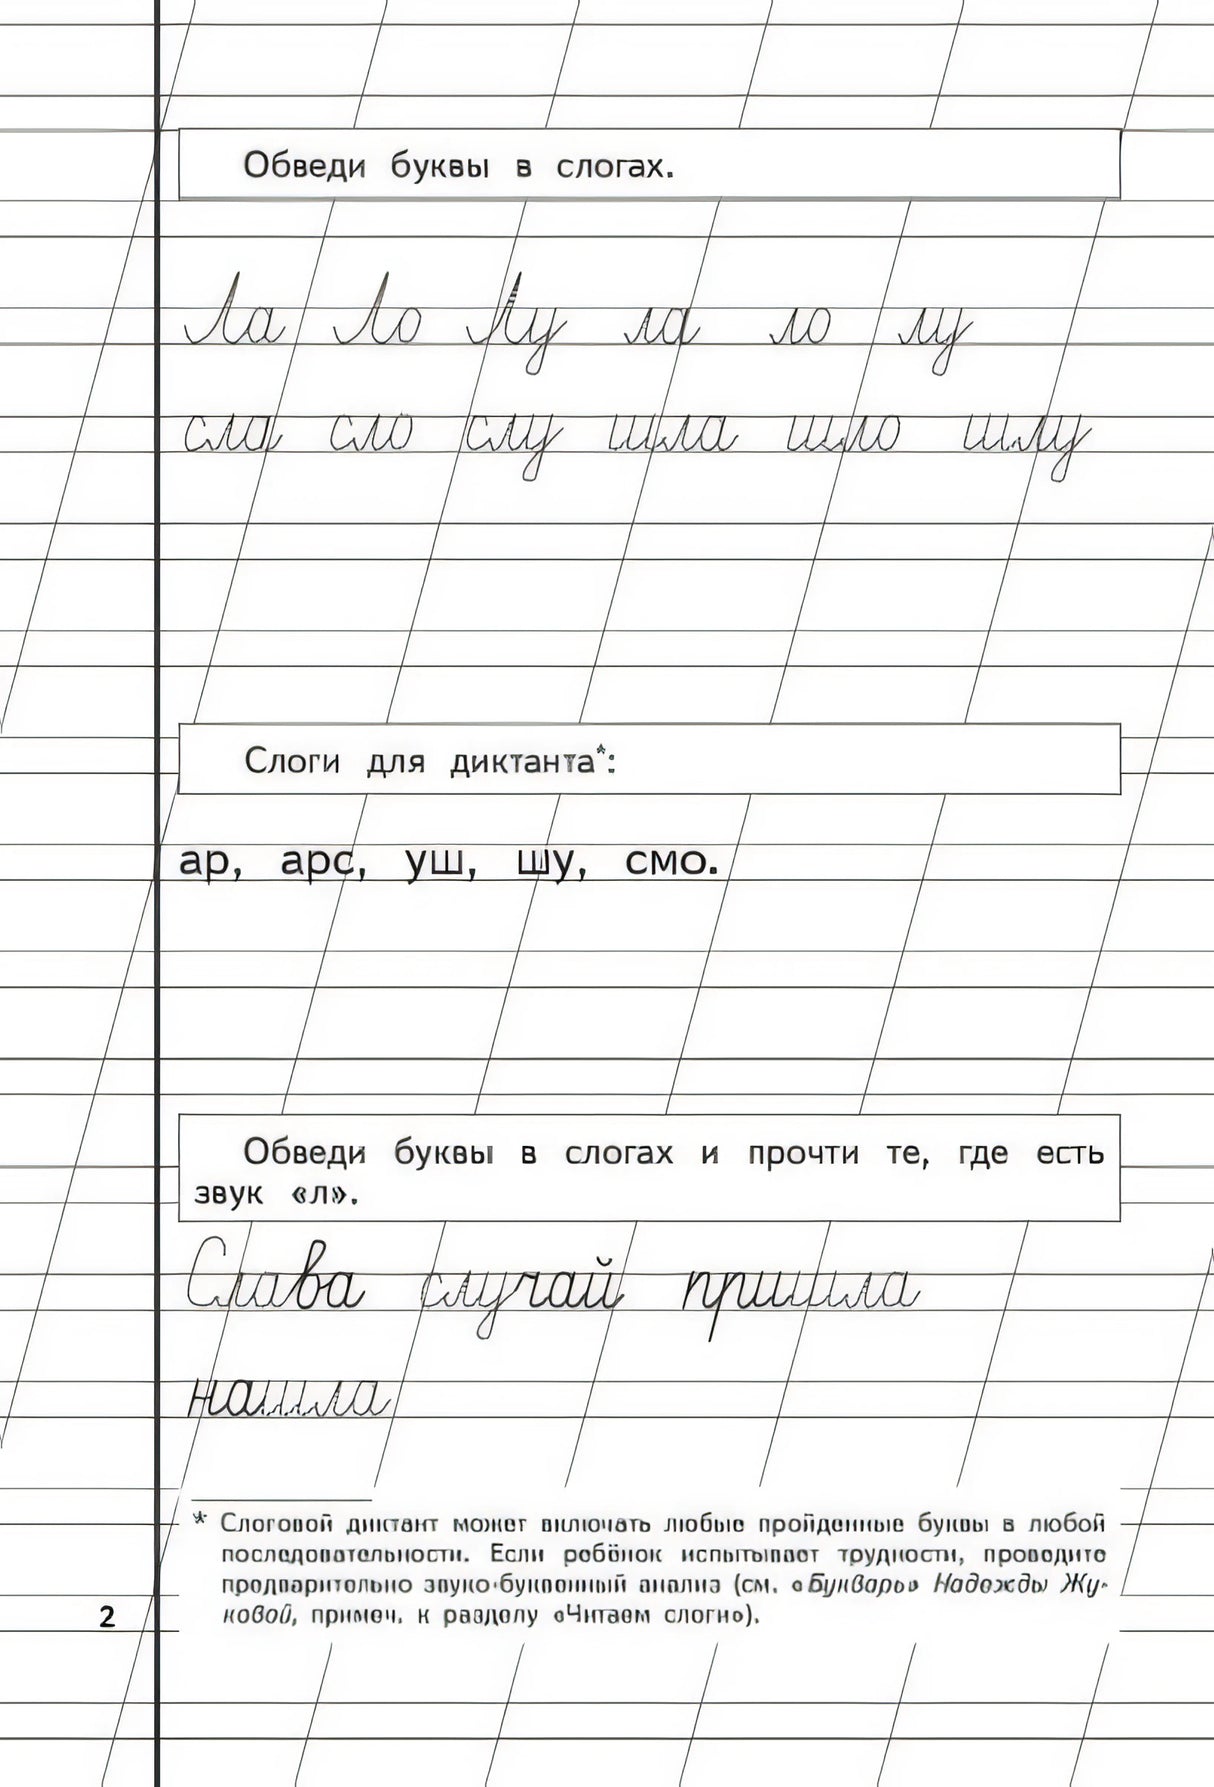 Обведи буквы в слогах.
Ла Ло Лу ла ло лу
сла сло слу шла шло шлу
Слоги для диктанта*:
ар, арс, уш, шу, смо.
Обведи буквы в слогах и прочти те, где есть
звук «л».
Слава случай пришла
нашла
* Слоговой диктант может включать любые пройденные буквы в любой
последовательности. Если ребёнок испытывает трудности, проводите
предварительно звуко-буквенный анализ (см. «Букварь» Надежды Жу-
ковой, примеч. к разделу «Читаем слоги»).
2